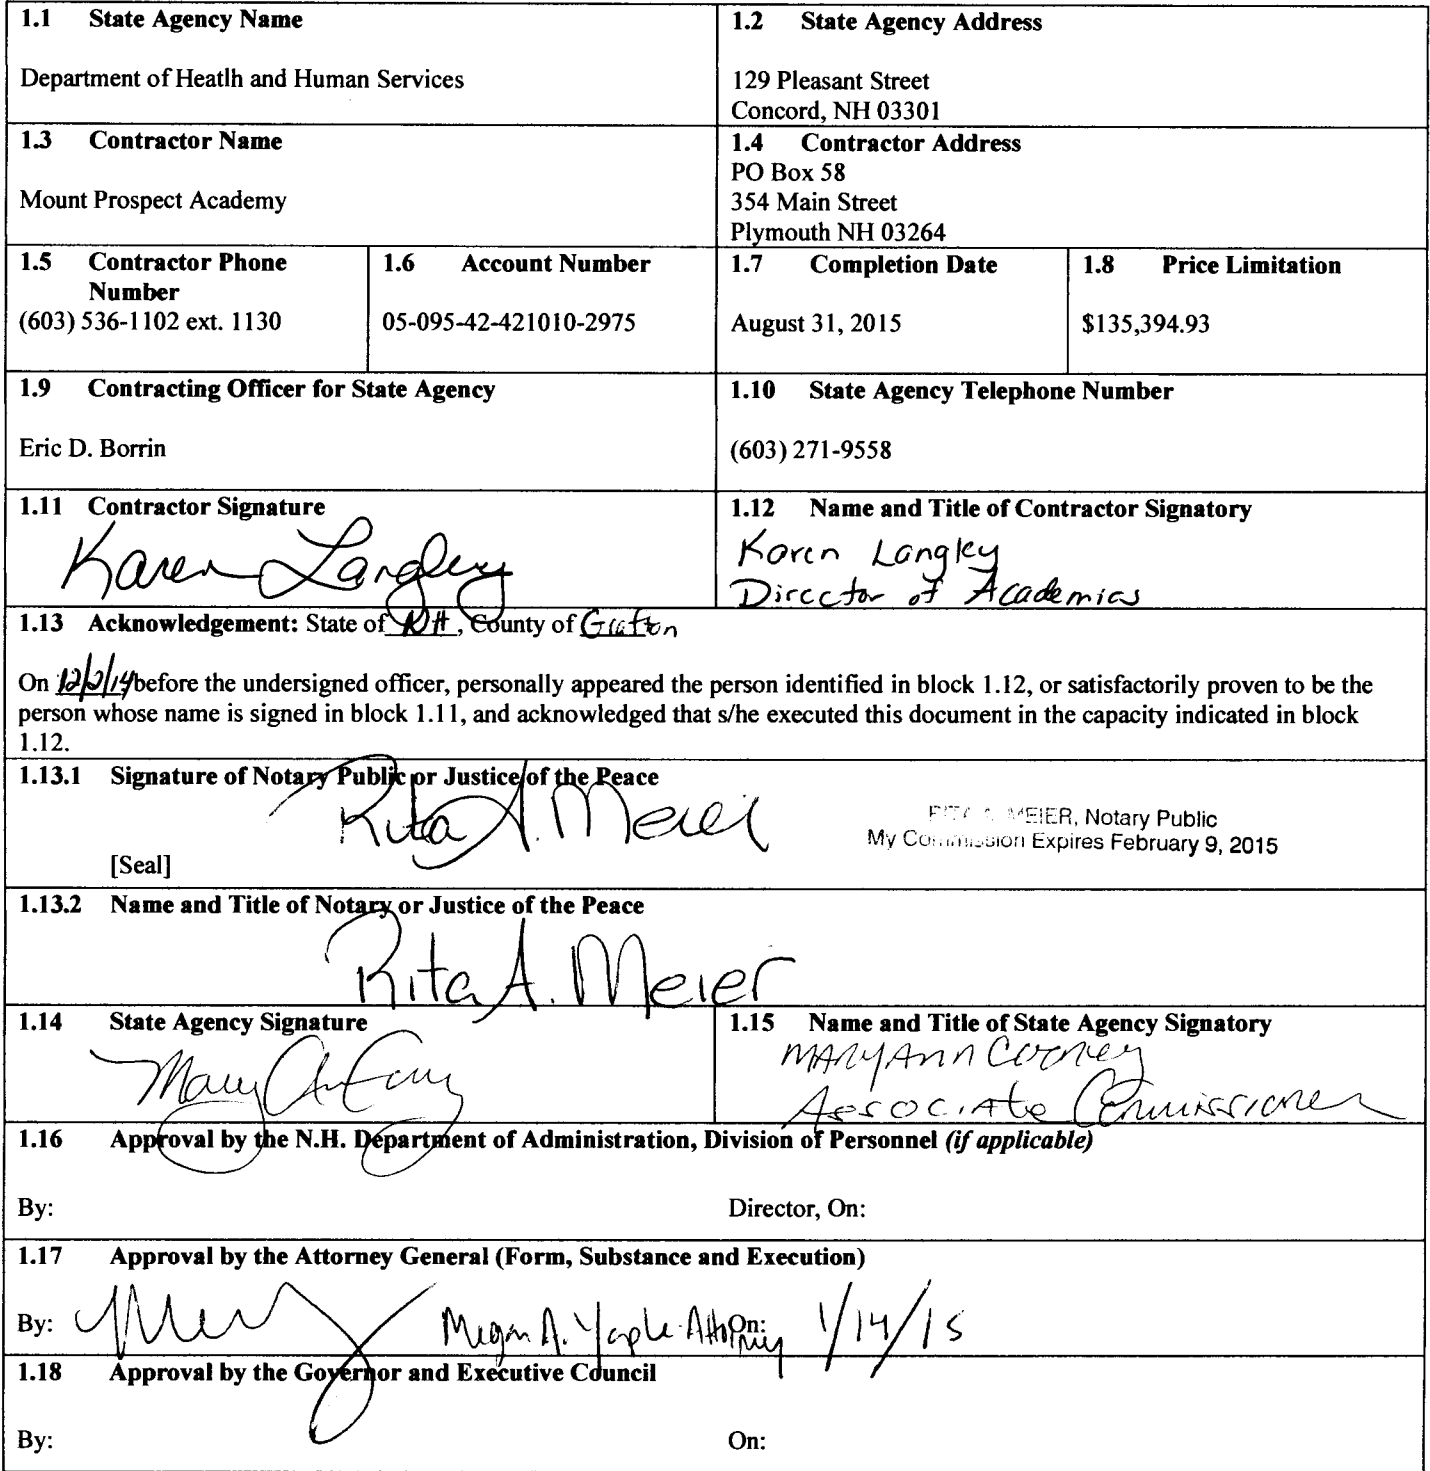 1.1 State Agency Name
Department of Heatlh and Human Services
1.2 State Agency Address
129 Pleasant Street
Concord, NH 03301
1.3 Contractor Name
Mount Prospect Academy
1.4 Contractor Address
PO Box 58
354 Main Street
Plymouth NH 03264
1.5 Contractor Phone
Number
(603) 536-1102 ext. 1130
1.6 Account Number
05-095-42-421010-2975
1.7 Completion Date
August 31, 2015
1.8 Price Limitation
$135,394.93
1.9 Contracting Officer for State Agency
Eric D. Borrin
1.10 State Agency Telephone Number
(603) 271-9558
1.11 Contractor Signature
Karen Langley
1.12 Name and Title of Contractor Signatory
Karen Langley
Director of Academics
1.13 Acknowledgement: State of NH, County of Grafton
On 12/2/14 before the undersigned officer, personally appeared the person identified in block 1.12, or satisfactorily proven to be the
person whose name is signed in block 1.11, and acknowledged that s/he executed this document in the capacity indicated in block
1.12.
1.13.1 Signature of Notary Public or Justice of the Peace
Rita A. Meier
RITA A. MEIER, Notary Public
My Commission Expires February 9, 2015
[Seal]
1.13.2 Name and Title of Notary or Justice of the Peace
Rita A. Meier
1.14 State Agency Signature
1.15 Name and Title of State Agency Signatory
MARYANN Cooney
Associate Commissioner
1.16 Approval by the N.H. Department of Administration, Division of Personnel (if applicable)
By: Director, On:
1.17 Approval by the Attorney General (Form, Substance and Execution)
By: Megan A. Yaple-Attorney On: 1/14/15
1.18 Approval by the Governor and Executive Council
By: On: